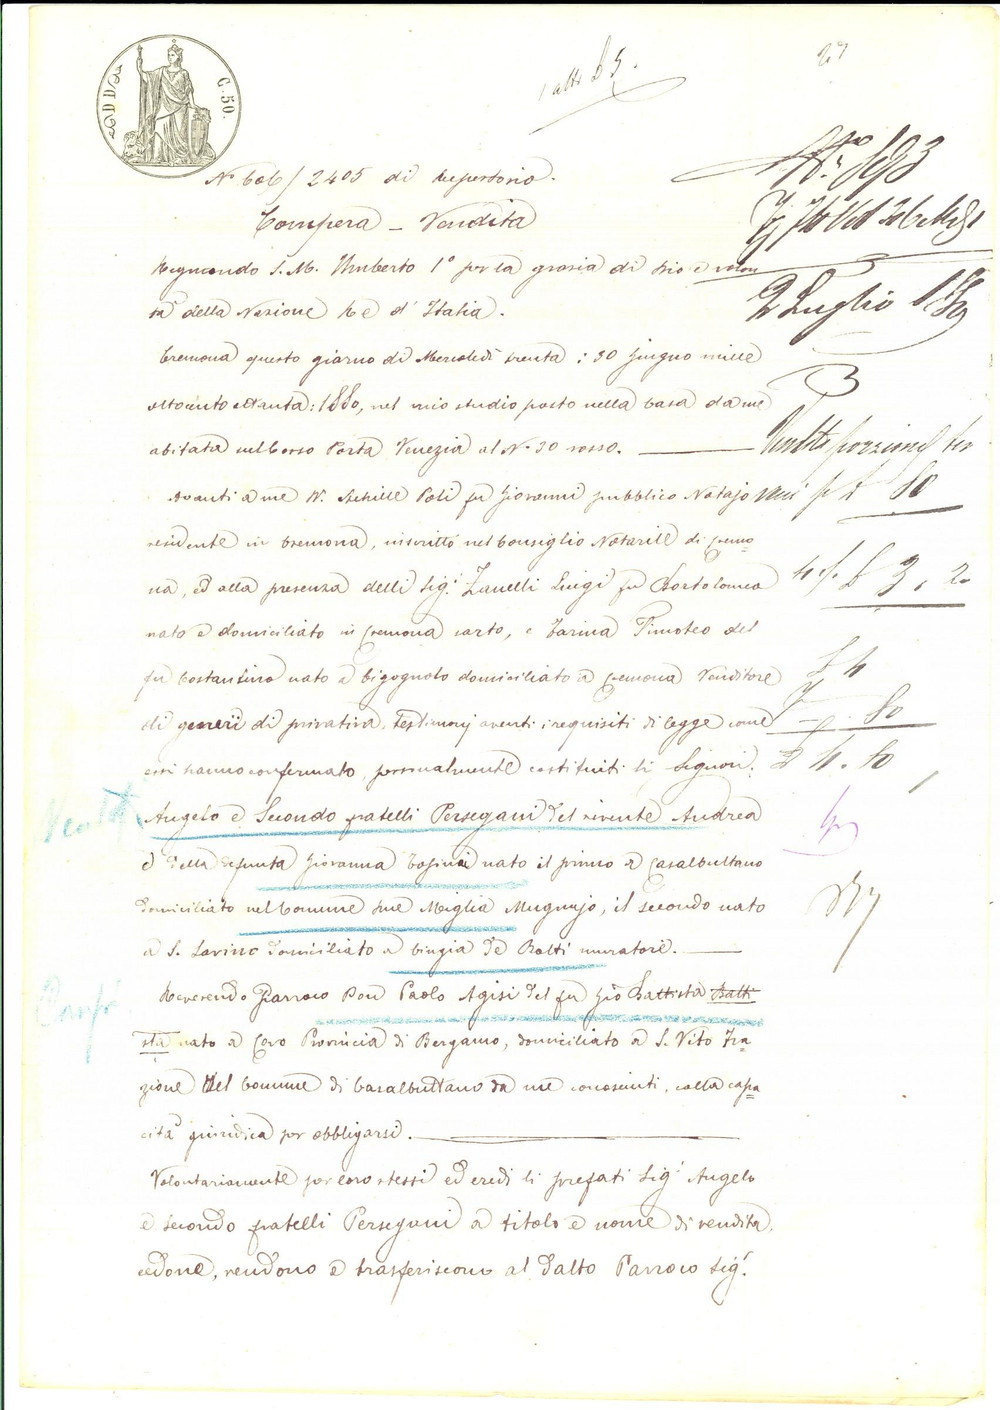 C. 50.
N° 606/2405 di repertorio.
Compera - Vendita
Regnando S. M. Umberto 1° per la grazia di Dio e volon
tà della Nazione Re d'Italia.
Cremona questo giorno di Mercoledì trenta: 30 Giugno mille
ottocento ottanta: 1880, nel mio studio posto nella Casa da me
abitata nel Corso Porta Venezia al N° 30 rosso.
Avanti a me N. Achille Poli fu Giovanni pubblico Notajo
residente in Cremona, inscritto nel Consiglio Notarile di Cremo=
na, ed alla presenza delli Sig.i Zanelli Luigi fu Bortolomeo
nato e domiciliato in Cremona sarto, e Farina Timoteo del
fu Costantino nato a Vigognolo domiciliato a Cremona Venditore
di generi di privativa, testimonj aventi i requisiti di legge come
essi hanno confermato, personalmente costituiti li Signori:
Angelo e Secondo fratelli Persegani del vivente Andrea
e della defunta Giovanna nato il primo a Casalbuttano
domiciliato nel Comune Due Miglia Mugnajo, il secondo nato
a S. Savino domiciliato a Bingia de Balti muratore.
Reverendo Parroco Don Paolo Agisi del fu Gio Battista Batti
sta nato a Covo Provincia di Bergamo, domiciliato a S. Vito Fra=
zione del Comune di Casalbuttano da me conosciuti, colla capa=
cità giuridica per obbligarsi.
Volontariamente per loro stessi ed eredi li prefati Sig.i Angelo
e Secondo fratelli Persegani a titolo e nome di vendita,
cedono, vendono e trasferiscono al dalto Parroco Sig.r
N.° 893
2 Luglio 1880
3
£ 80
£ 3,20
£ 4
80
£ 4.80